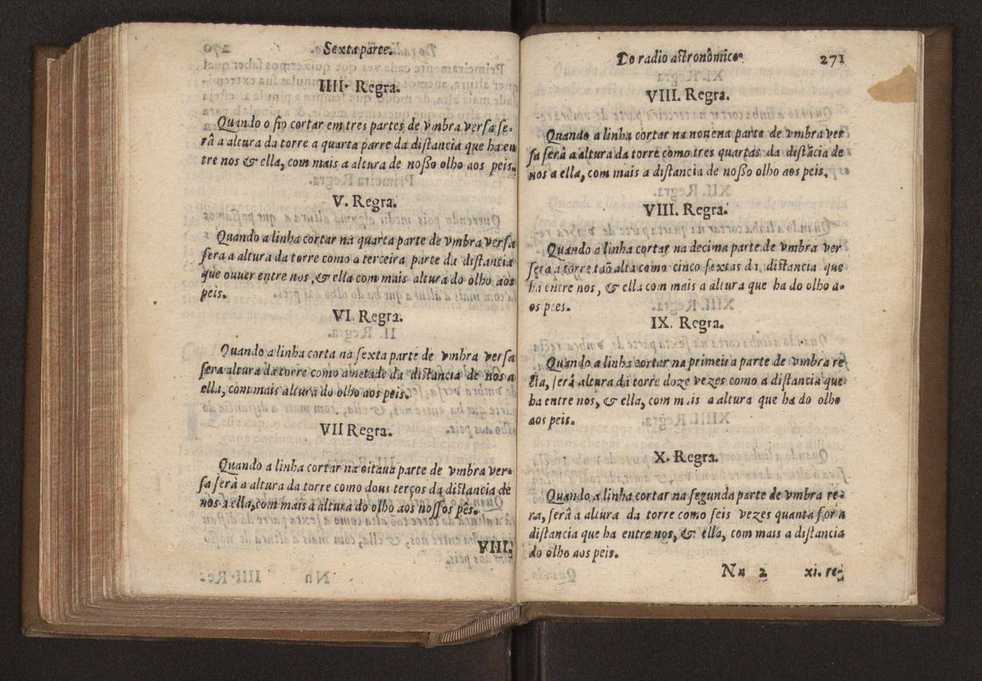 Sexta parte.
IIII. Regra.
Quando o fio cortar em tres partes de vmbra versa se-
râ a altura da torre a quarta parre da distancia que ha en
tre nos & ella, com mais a altura de nosso olho aos peis.
V. Regra.
Quando a linha cortar na quarta parte de vmbra versa
sera a altura da torre como a terceira parte da distancia
que ouuer entre nos, & ella com mais altura do olho aos
peis.
VI. Regra.
Quando a linha corta na sexta parte de vmbra versa
sera altura da torre como ametade da distancia de nos a
ella, com mais altura do olho aos peis.
VII Regra.
Quando a linha cortar na oitaua parte de vmbra ver-
sa serâ a altura da torre como dous terços da distancia de
nos a ella, com mais a altura do olho aos nossos pes.
VIII.
Do radio astronômico. 271
VIII. Regra.
Quando a linha cortar na nouena parte de vmbra ver
sa serâ a altura da torre como tres quartas da distãcia de
nos a ella, com mais a distancia de nosso olho aos peis.
VIII. Regra.
Quando a linha cortar na decima parte de vmbra ver
sera a torre taõ alta como cinco sextas da distancia que
ha entre nos, & ella com mais a altura que ha do olho a-
os pees.
IX. Regra.
Quando a linha cortar na primeira parte de vmbra re
cta, serâ altura da torre doze vezes como a distancia que
ha entre nos, & ella, com mais a altura que ha do olho
aos peis.
X. Regra.
Quando a linha cortar na segunda parte de vmbra re-
ra, serâ a altura da torre como seis vezes quanta for a
distancia que ha entre nos, & ella, com mais a distancia
do olho aos peis.
Nn 2 xi. re-